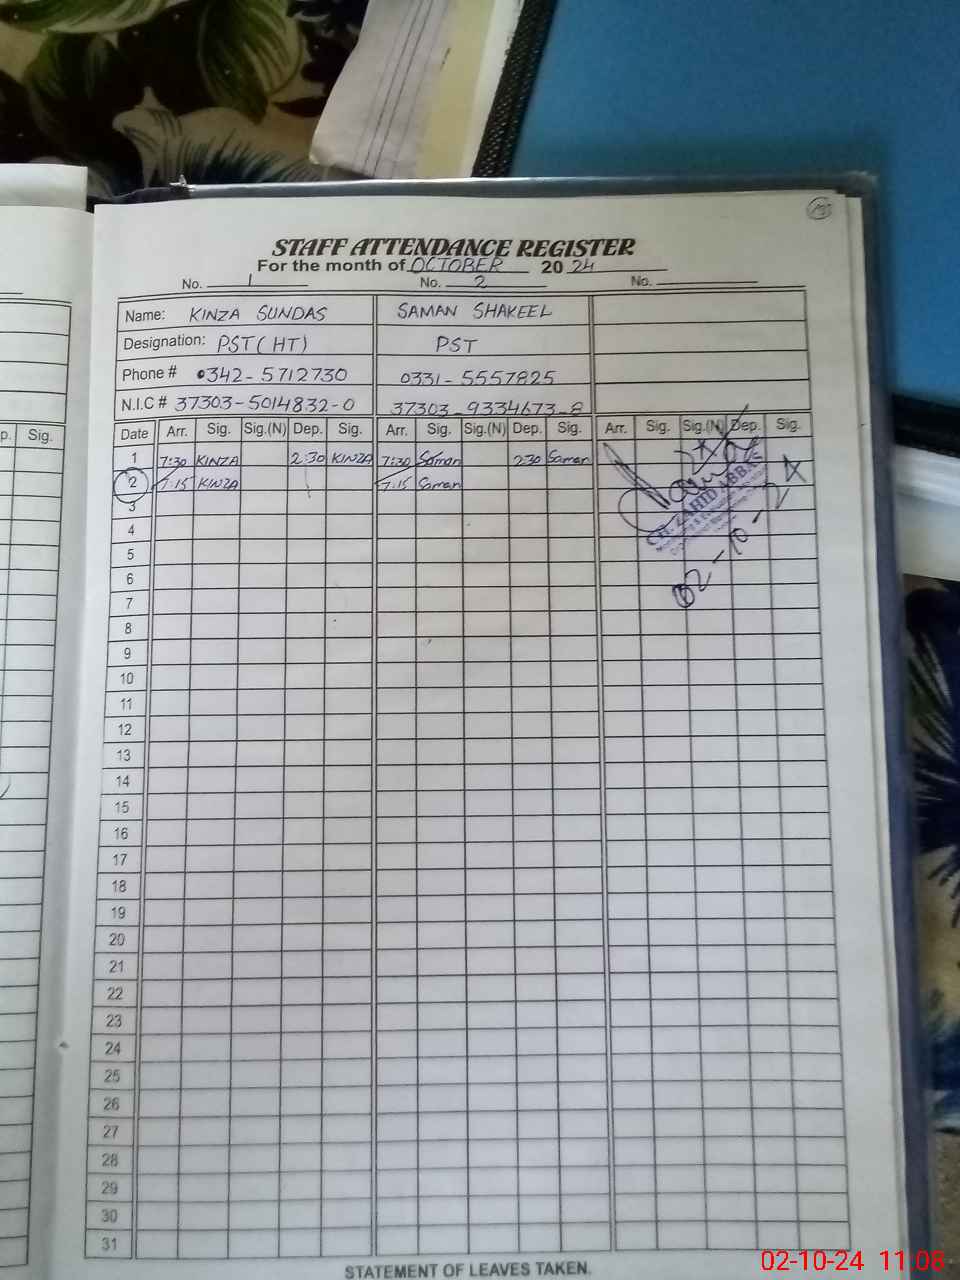 STAFF ATTENDANCE REGISTER
For the month of OCTOBER 20 24
No. 1 No. 2 No.
Name: KINZA SUNDAS SAMAN SHAKEEL
Designation: PST (HT) PST
Phone # 0342-5712730 0331-5557825
N.I.C # 37303-5014832-0 37303-9334673-8
p. Sig. Date Arr. Sig. Sig.(N) Dep. Sig. Arr. Sig. Sig.(N) Dep. Sig. Arr. Sig. Sig.(N) Dep. Sig.
1 7:30 KINZA 2:30 KINZA 7:30 Saman 2:30 Saman
2 7:15 KINZA 7:15 Saman
3
4
5
6
7
8
9
10
11
12
13
14
15
16
17
18
19
20
21
22
23
24
25
26
27
28
29
30
31
CH. ZAHID ABBAS
02-10-24
STATEMENT OF LEAVES TAKEN.
02-10-24 11:08